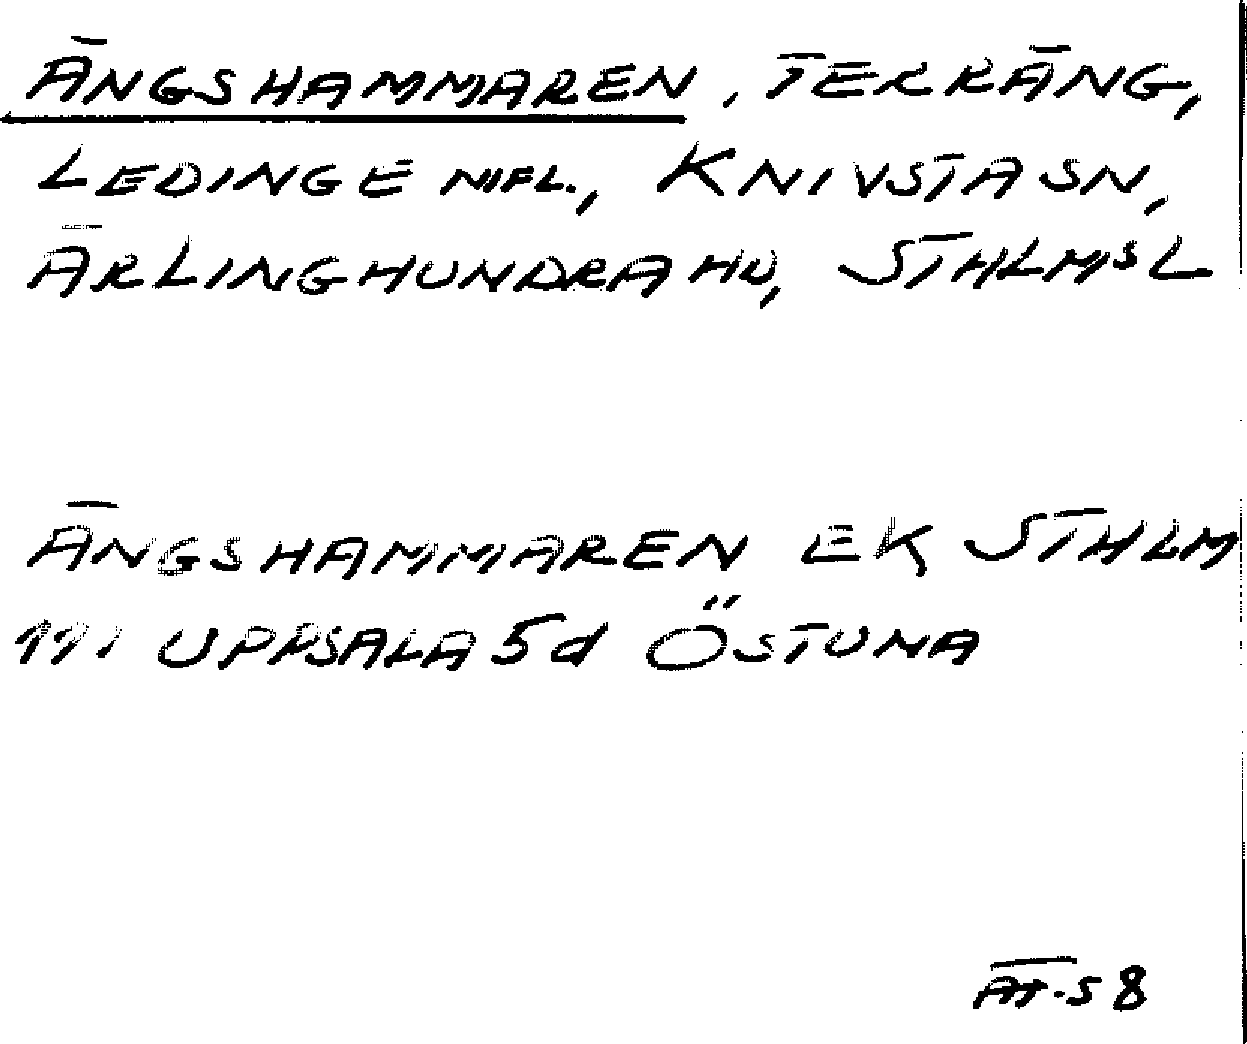 ÄNGSHAMMAREN, TERRÄNG,
LEDINGE NIFL., KNIVSTA SN,
ÄRLINGHUNDRA HD, STHLMS L
ÄNGSHAMMAREN EK STHLM
111 UPPSALA 5d ÖSTUNA
ÄT-S 8